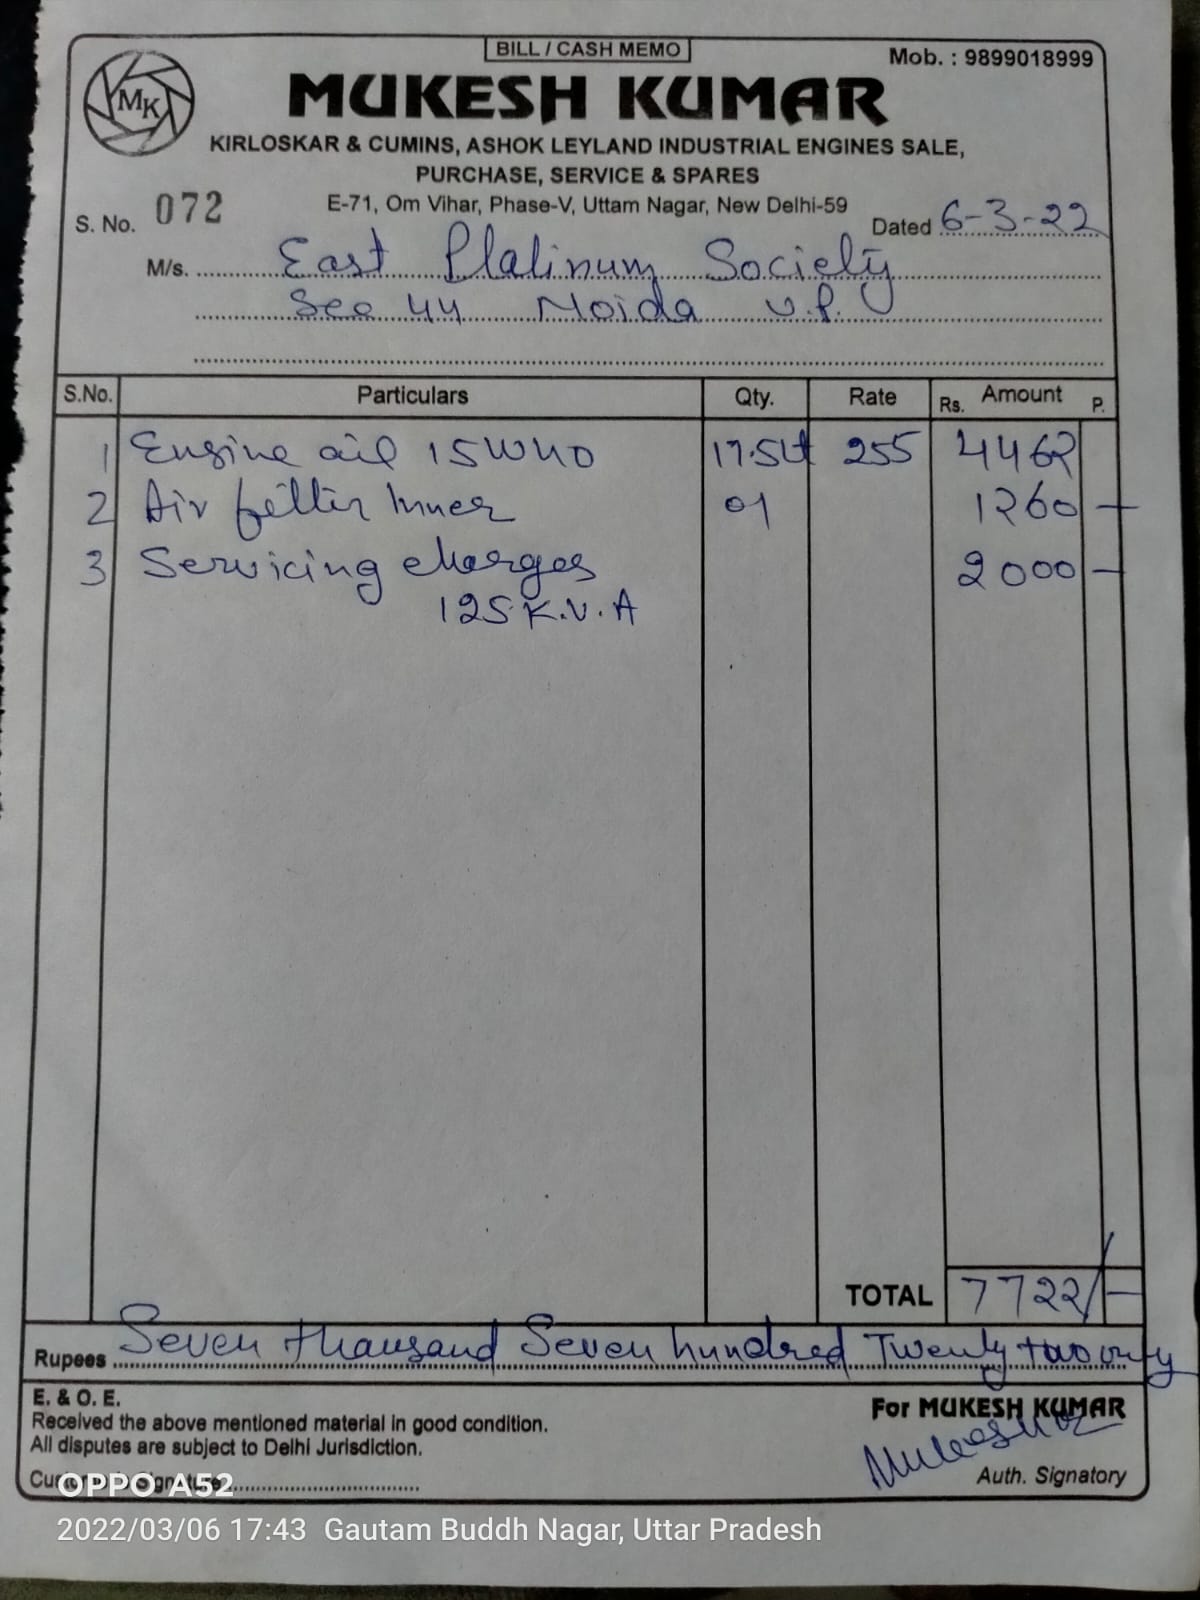 BILL / CASH MEMO
Mob. : 9899018999
MK
MUKESH KUMAR
KIRLOSKAR & CUMINS, ASHOK LEYLAND INDUSTRIAL ENGINES SALE,
PURCHASE, SERVICE & SPARES
E-71, Om Vihar, Phase-V, Uttam Nagar, New Delhi-59
S. No. 072
Dated 6-3-22
M/s. East Platinum Society
Sec 44 Noida U.P.
S.No. Particulars Qty. Rate Amount Rs. P.
1 Engine oil 15W40 17.5Lt 255 4462
2 Air filter Inner 01 1260 —
3 Servicing charges 2000 —
125 K.V.A
TOTAL 7722/-
Rupees Seven thousand Seven hundred Twenty two only
E. & O. E.
Received the above mentioned material in good condition.
All disputes are subject to Delhi Jurisdiction.
For MUKESH KUMAR
Auth. Signatory
OPPO A52
2022/03/06 17:43 Gautam Buddh Nagar, Uttar Pradesh